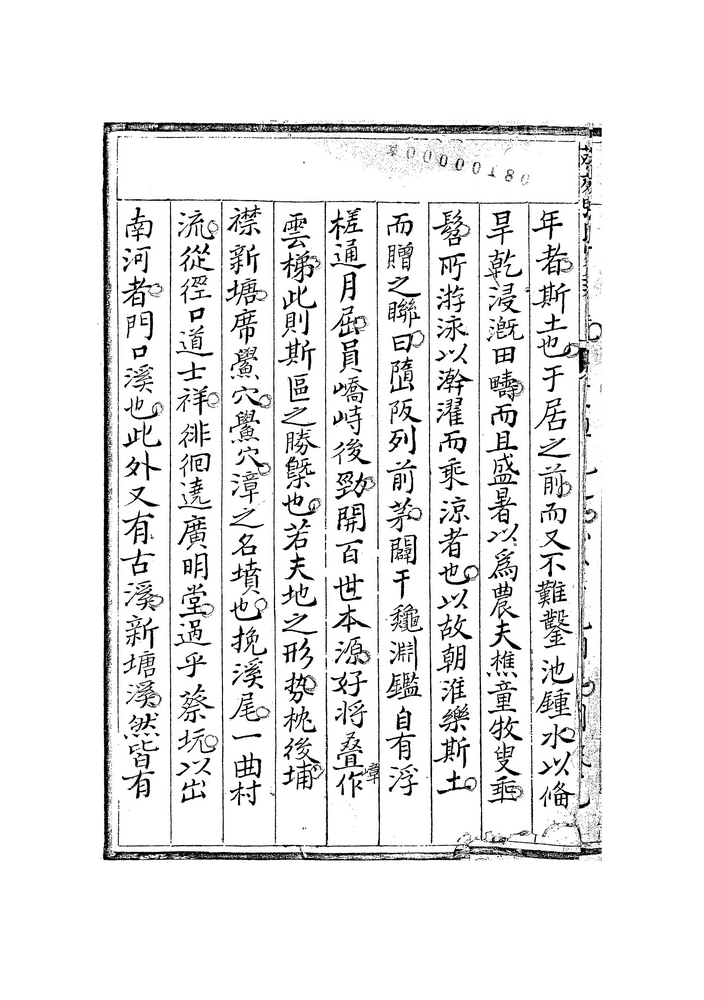 00000180
年者斯土也于居之前而又不難鑿池鍾水以俻
旱乾浸漑田疇而且盛暑以爲農夫樵童牧叟垂
髫所游泳以澣濯而乘涼者也以故朝淮樂斯土
而贈之聯曰隨阪列前茅闢干龜淵鑑自有浮
槎通月屈員嶠峙後勁開百世本源好將叠作
雲梯此則斯區之勝槩也若夫地之形势枕後埔
襟新塘席鱟穴鱟穴漳之名墳也挽溪尾一曲村
流從徑口道士祥徘徊遶廣明堂過乎蔡坑以出
南河者門口溪也此外又有古溪新塘溪然皆有